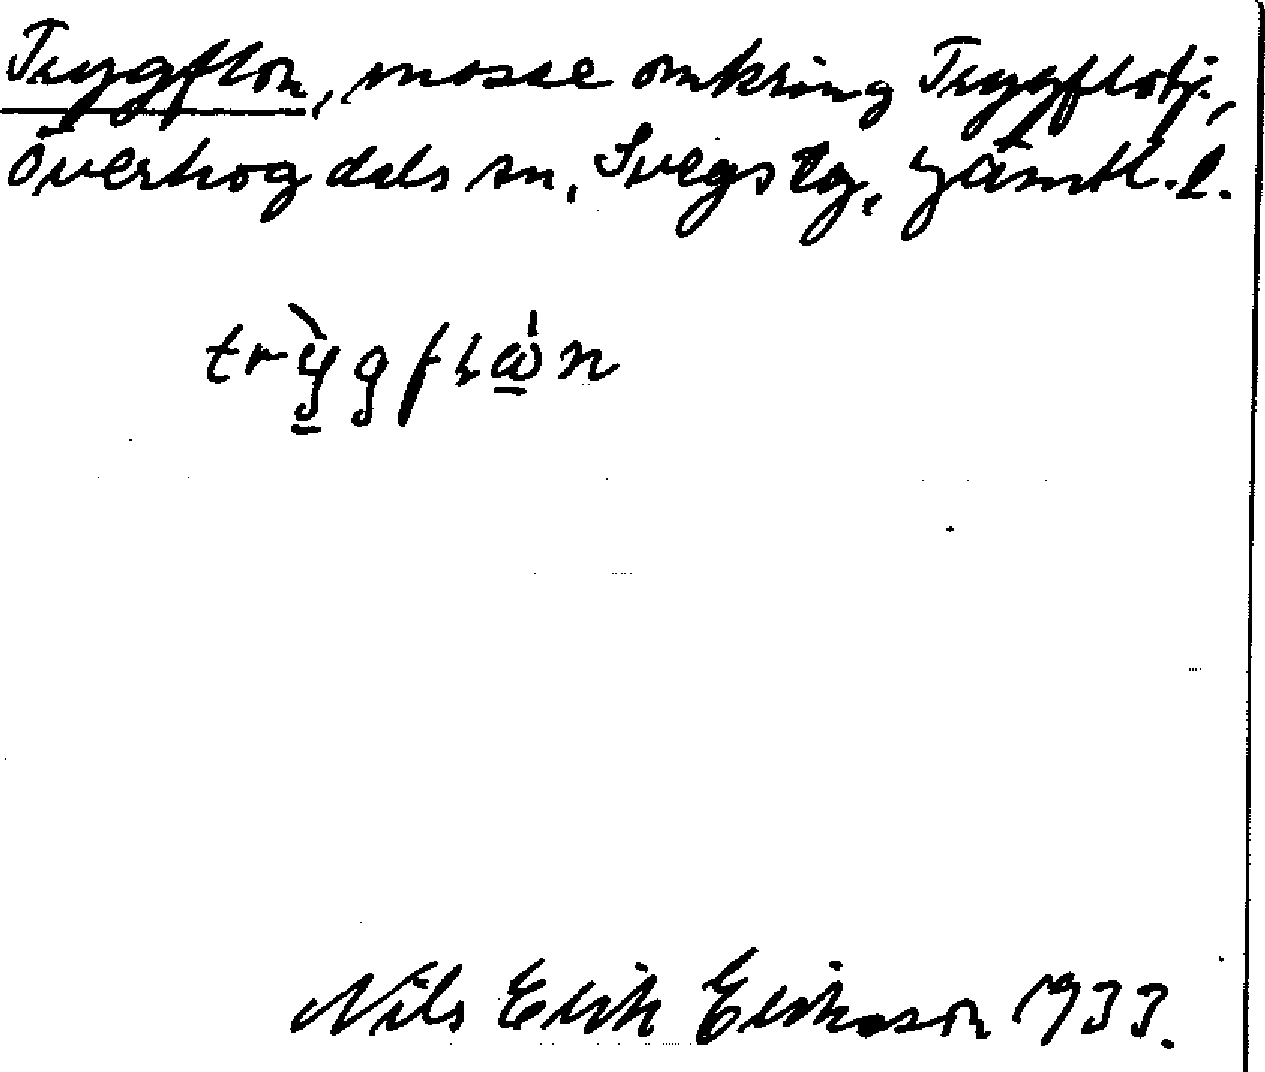 Tryggflon, mosse omkring Tryggflotj.,
Överhogdals sn, Svegs tg, Jämtl. l.
trỳgflω̍n
Nils Erik Eriksson 1933.